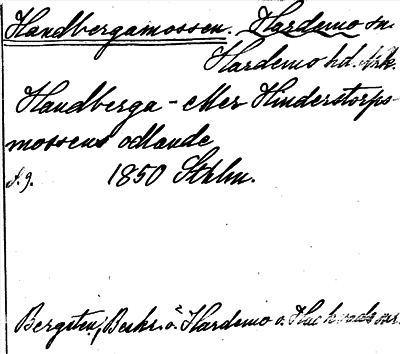 Handbergamossen. Hardemo sn.
Hardemo hd. Nrk.
Handberga- eller Hinderstorps-
mossens odlande
s. 9. 1850 Sthlm.
Bergsten, Beskr. ö. Hardemo o. Hackvads snr.